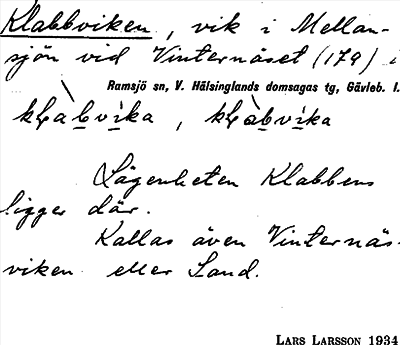 Klabbviken, vik i Mellan-
sjön vid Vinternäset (179) i
Ramsjö sn, V. Hälsinglands domsagas tg, Gävleb. l.
Lägenheten Klabbens
ligger där.
Kallas även Vinternäs-
viken eller Sand.
LARS LARSSON 1934